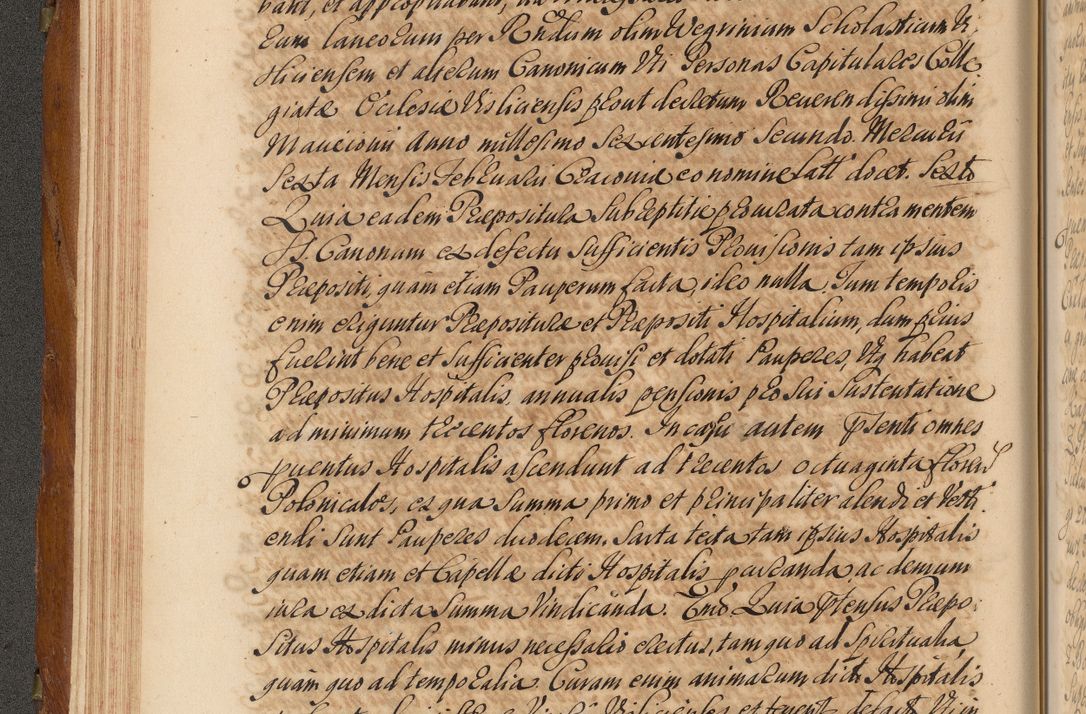 bant, et appropriabant,
Eum laneorum per Rndum olim Wegrinium Scholasticum Vi,
sliciensem et alterum Canonicum Uti Personas Capitulares Colle
giatæ Ecclesiæ Visliciensis prout decretum Reverendissimi olim
Maneionii Anno millesimo Sexcentesimo Secundo. Mercurii
Sexta Mensis Februarii Cracoviæ eo nomine latt' docet. Sexto
Quia eadem Præpositura Subreptitie procurata contra mentem
SS. Canonum ex defectu Sufficientis Provisionis tam ipsius
Præpositi, quam etiam Pauperum facta, ideo nulla. Tum temporis
enim eriguntur Præposituræ et Præpositi Hospitalium, dum prius
fuerint bene et Sufficienter provisi et dotati Pauperes, Utq habeat
Præpositus Hospitalis, annualis pensionis pro Sui Sustentatione
ad minimum trecentos florenos. In casu autem pnsenti omnes
pventus Hospitalis ascendunt ad trecentos octuaginta floren
Polonicales, ex qua Summa primo et principaliter alendi et Vesti
endi Sunt Pauperes duodecem, Sarta tecta tam ipsius Hospitalis
quam etiam et Capellæ dicti Hospitalis pcuranda, ac demum
jura ex dicta Summa Vindicanda. Quia ptensus Præpo:
situs Hospitalis minus necessario erectus, tam quo ad Spiritualia
quam quo ad temporalia. Curam enim animarum dicti Hospitalis
Visliciensis et fovent